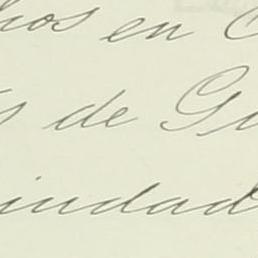 hos en
s de Gu
indad